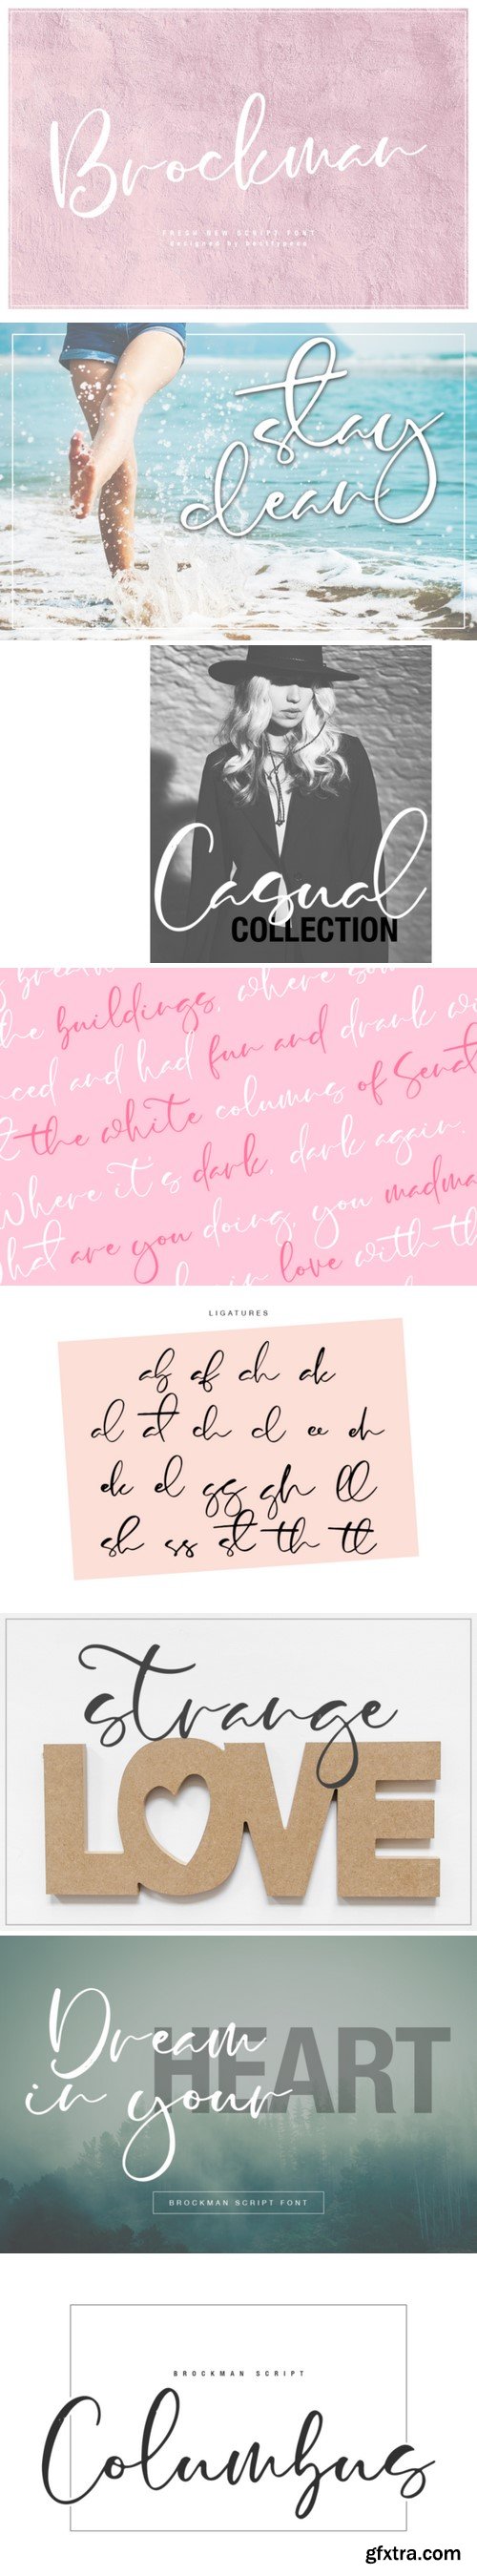 Brockman
FRESH NEW SCRIPT FONT
designed by besttypeco
stay
clean
Casual
COLLECTION
the buildings, where
ced and had fun and drank
the white columns of Senat
Where it's dark, dark again.
hat are you doing, you madma
love with th
LIGATURES
ab af ah ak
al at ch cl ee eh
ek el gg gh ll
sh ss st th tt
strange
LOVE
Dream
HEART
in your
BROCKMAN SCRIPT FONT
BROCKMAN SCRIPT
Columbus
gfxtra.com